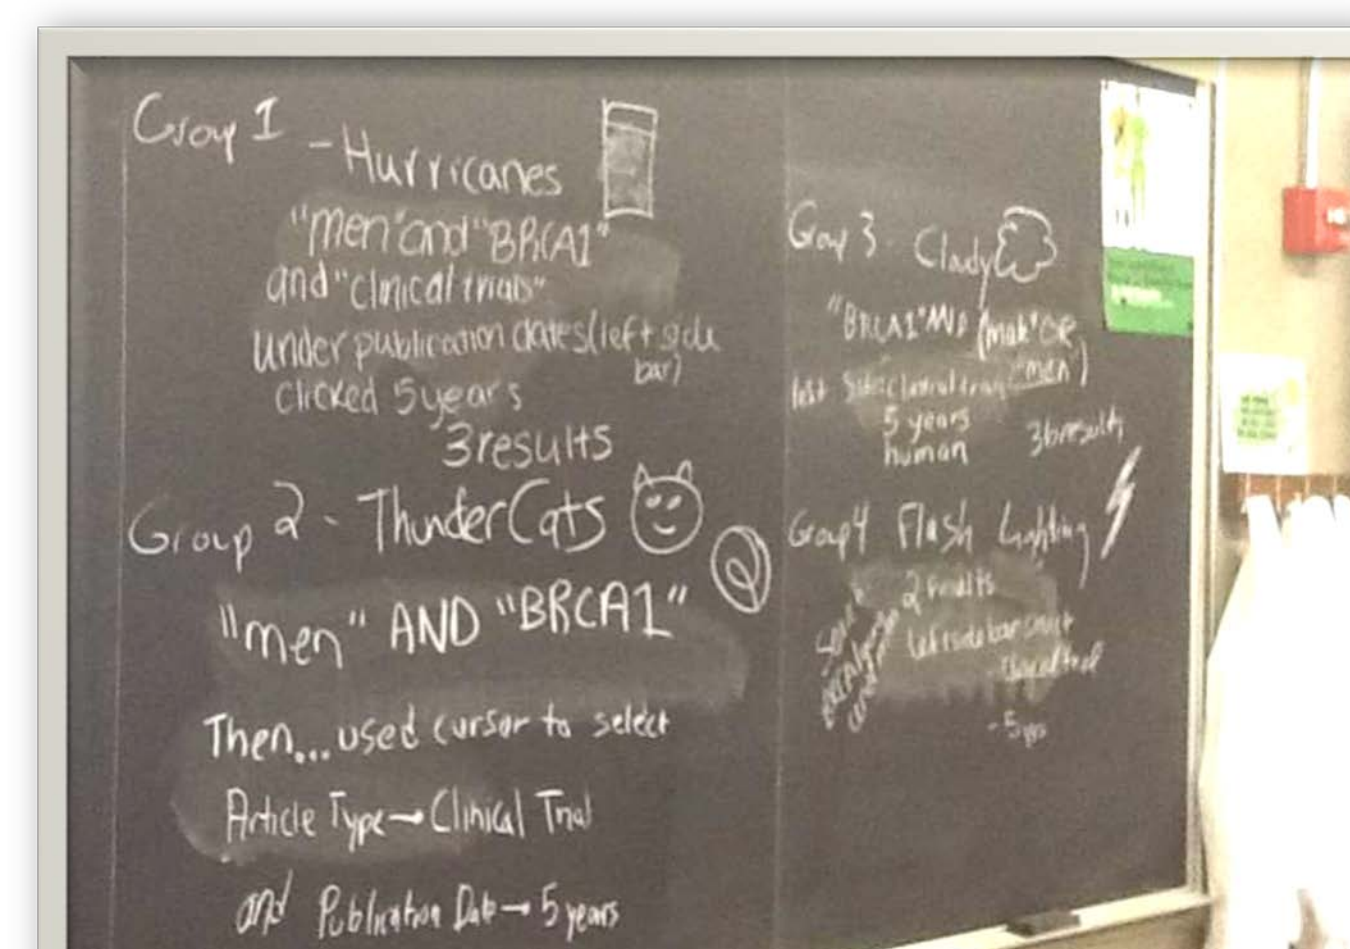 Group 1 - Hurricanes
"men" and "BRCA1"
and "clinical trials"
under publication dates (left side
bar)
clicked 5 years
3 results
Group 2 - ThunderCats
"men" AND "BRCA1"
Then... used cursor to select
Article Type → Clinical Trial
and Publication Date → 5 years
Group 3 Clowdy
"BRCA1" AND ("male" OR
"men")
5 years
human
36 results
Group 4 Flash Lighting
2 results
left side bar
- 5 yrs